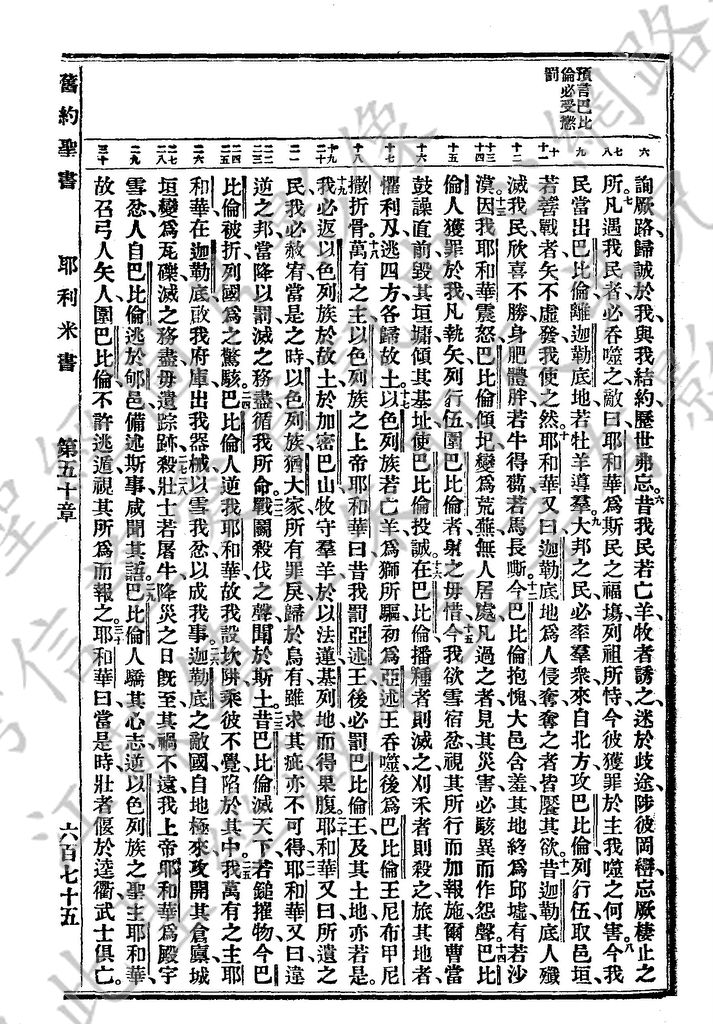 預言巴比
倫必受懲
罰
六
詢厥路歸誠於我與我結約歷世弗忘六昔我民若亡羊牧者誘之迷於歧途陟彼岡巒忘厥棲止之
七
八
所七凡遇我民者必吞噬之敵曰耶和華爲斯民之福塲列祖所恃今彼獲罪於主我噬之何害八今我
九
民當出巴比倫離迦勒底地若牡羊導羣九大邦之民必率羣衆來自北方攻巴比倫列行伍取邑垣
十
十一
若善戰者矢不虛發我使之然十耶和華又曰迦勒底地爲人侵奪奪之者皆饜其欲十一昔迦勒底人殲
十二
滅我民欣喜不勝身肥體胖若牛得芻若馬長嘶十二今巴比倫抱愧大邑含羞其地終爲邱墟有若沙
十三
十四
漠十三因我耶和華震怒巴比倫傾圮變爲荒蕪無人居處凡過之者見其災害必駭異而作怨聲十四巴比
十五
倫人獲罪於我凡執矢列行伍圍巴比倫者射之毋惜十五今我欲雪宿忿視其所行而加報施爾曹當
十六
鼓譟直前毀其垣墉傾其基址使巴比倫投誠十六在巴比倫播種者則滅之刈禾者則殺之旅其地者
十七
懼利刄逃四方各歸故土十七以色列族若亡羊爲獅所驅初爲亞述王吞噬後爲巴比倫王尼布甲尼
十八
撒折骨十八萬有之主以色列族之上帝耶和華曰昔我罰亞述王後必罰巴比倫王及其土地亦若是
十九
二十
十九我必返以色列族於故土於加密巴山牧守羣羊於以法蓮基列地而得果腹二十耶和華又曰所遺之
二一
民我必赦宥當是之時以色列族猶大家所有罪戾歸於烏有雖求其疵亦不可得二一耶和華又曰違
二二
二三
逆之邦當降以罰滅之務盡循我所命二二戰鬭殺伐之聲聞於斯土二三昔巴比倫滅天下若鎚摧物今巴
二四
二五
比倫被折列國爲之驚駭二四巴比倫人逆我耶和華故我設坎阱乘彼不覺陷於其中二五我萬有之主耶
二六
和華在迦勒底啟我府庫出我器械以雪我忿以成我事二六迦勒底之敵國自地極來攻開其倉廩城
二七
二八
垣變爲瓦礫滅之務盡毋遺踪跡二七殺壯士若屠牛降災之日旣至其禍不遠二八我上帝耶和華爲殿宇
二九
雪忿人自巴比倫逃於郇邑備述斯事咸聞其語二九巴比倫人驕其心志逆以色列族之聖主耶和華
三十
故召弓人矢人圍巴比倫不許逃遁視其所爲而報之三十耶和華曰當是時壯者偃於逵衢武士俱亡
舊約聖書 耶利米書 第五十章 六百七十五